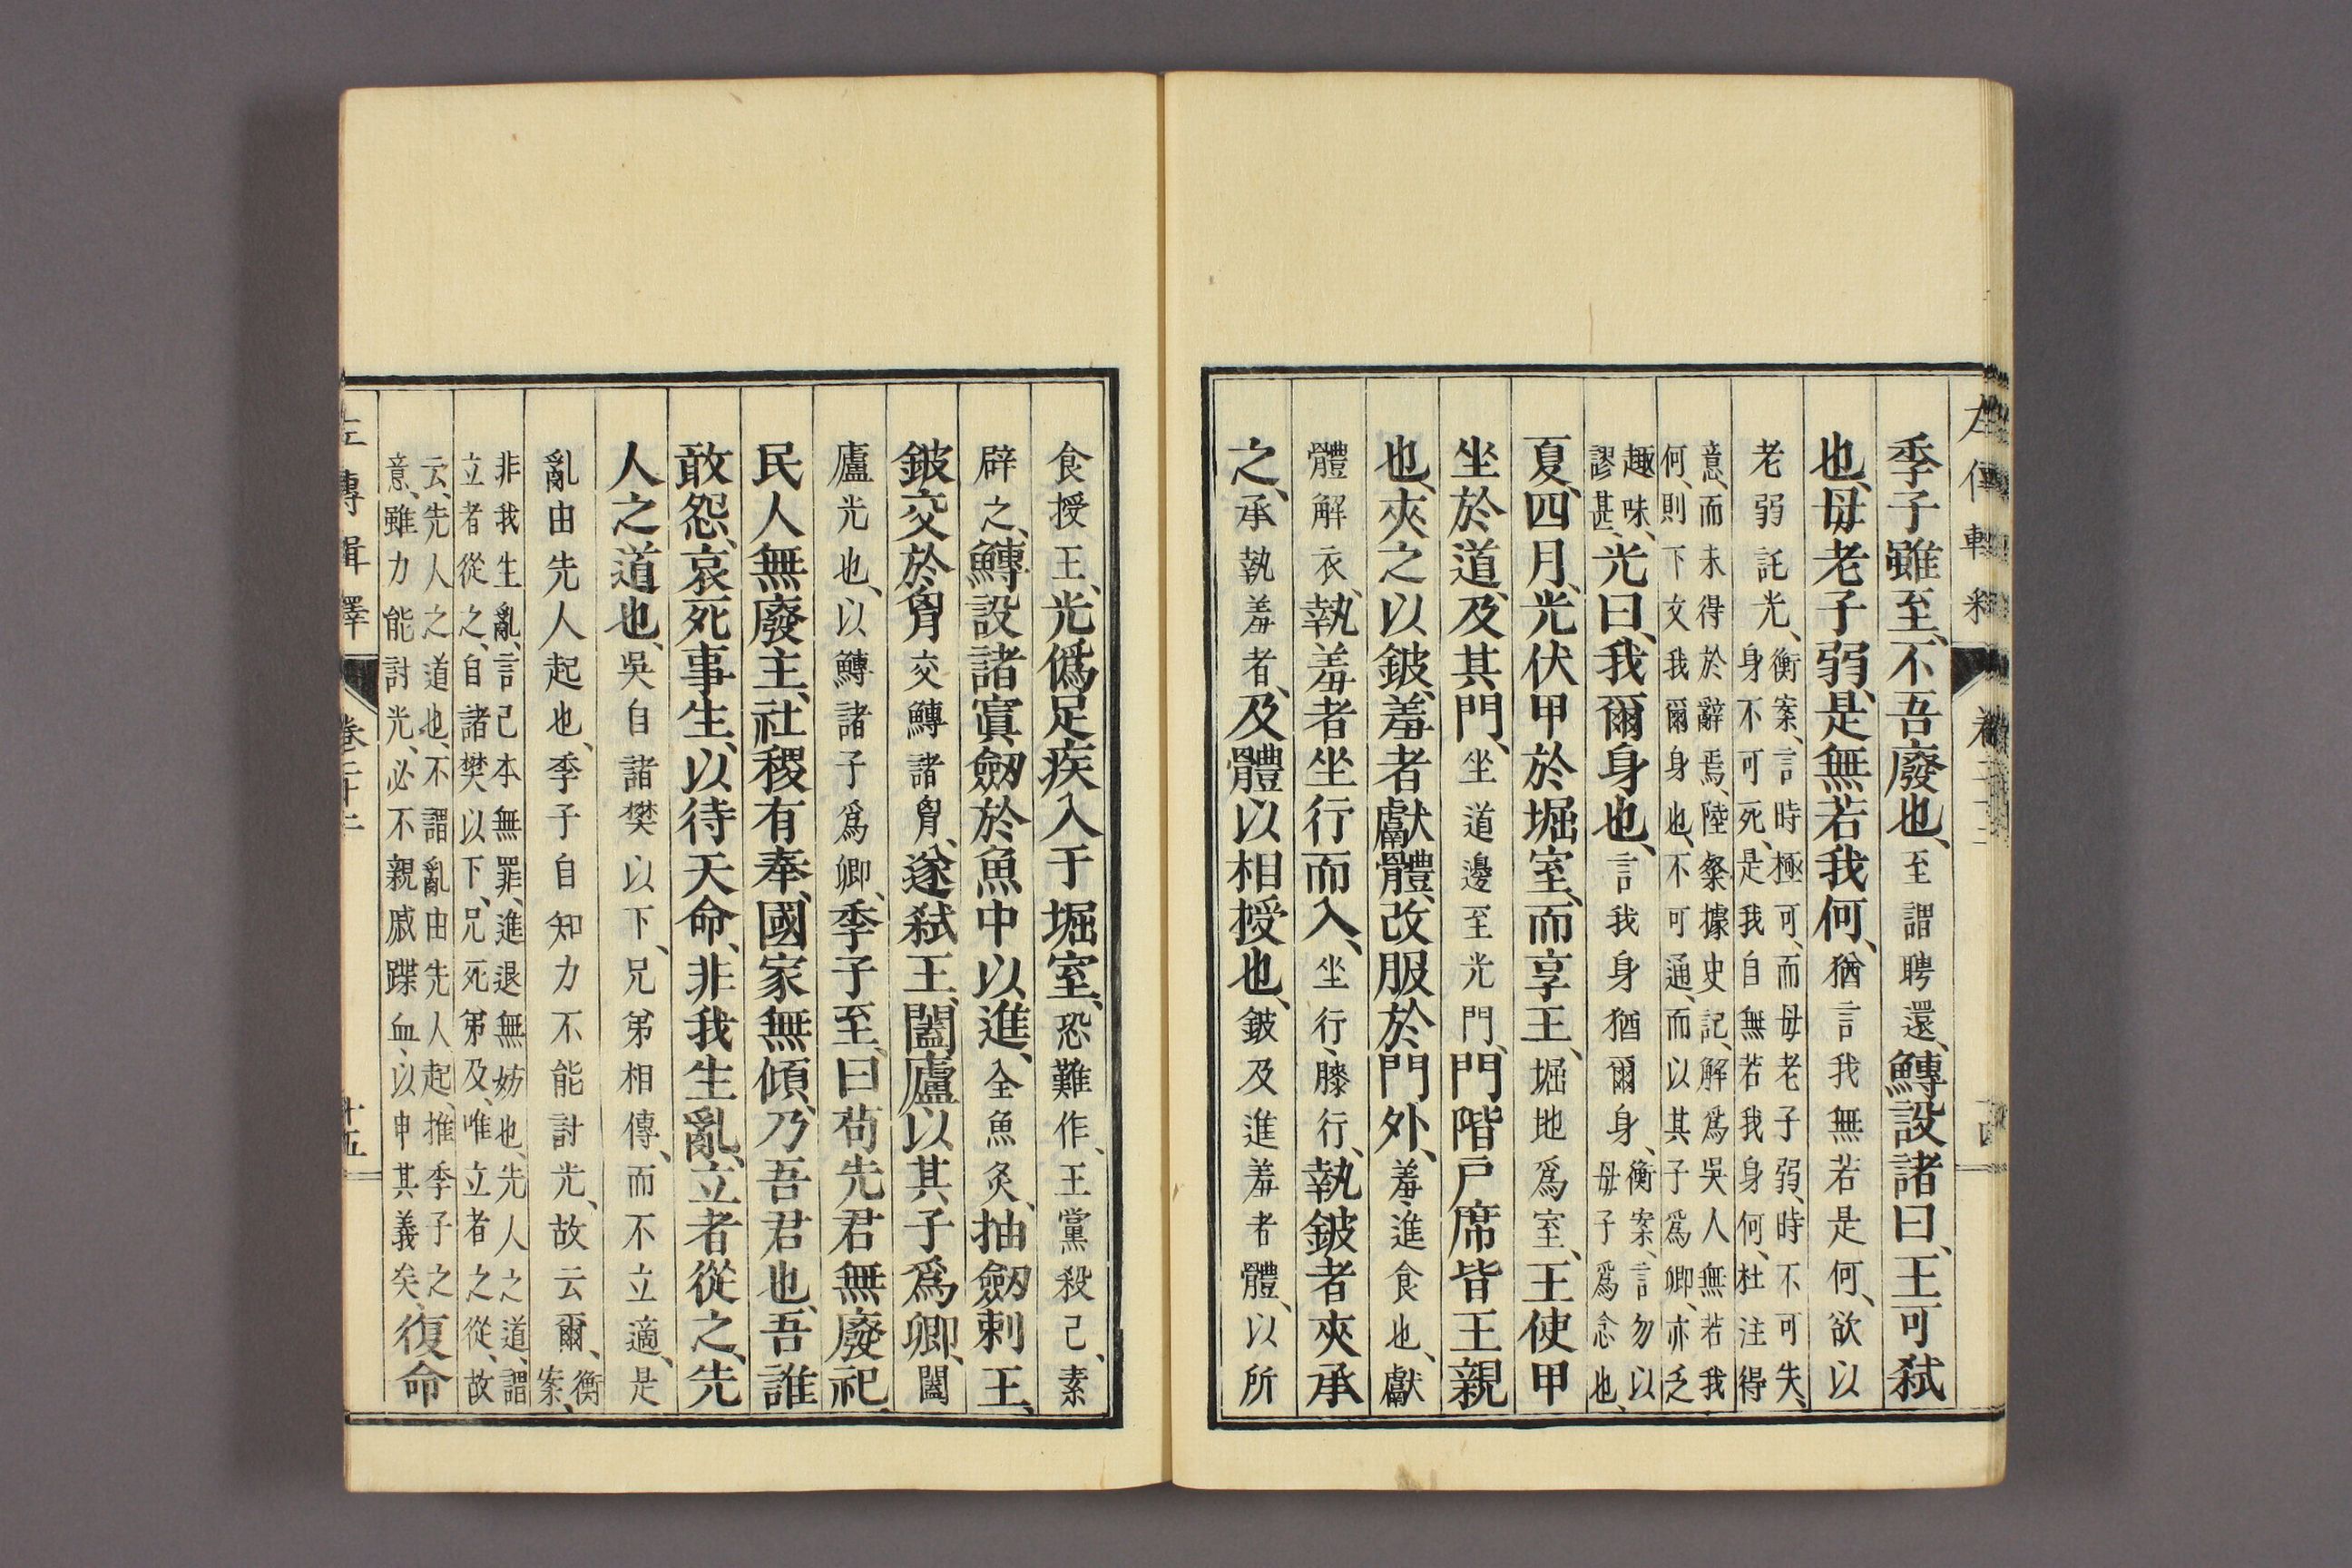 季子雖至、不吾廢也、至謂聘還、鱄設諸曰、王可弑
也、母老子弱、是無若我何、猶言我無若是何、欲以
老弱託光、衡案、言時極可、而母老子弱、時不可失、
身不可死、是我自無若我身何、杜注得
意、而未得於辭焉、陸粲據史記、解爲吳人無若我
何、則下文我爾身也、不可通、而以其子爲卿、亦乏
趣味、
謬甚、光曰、我爾身也、言我身猶爾身、衡案、言勿以
母子爲念也、
夏、四月、光伏甲於堀室、而享王、堀地爲室、王使甲
坐於道、及其門、坐道邊至光門、門階戶席皆王親
也、夾之以鈹、羞者獻體、改服於門外、羞、進食也、獻
體解衣、執羞者坐行而入、坐行、膝行、執鈹者夾承
之、承執羞者、及體以相授也、鈹及進羞者體、以所
食授王、光僞足疾、入于堀室、恐難作、王黨殺己、素
辟之、鱄設諸窴劒於魚中以進、全魚炙、抽劒刺王、
鈹交於胷、交鱄諸胷、遂弑王、闔廬以其子爲卿、闔
廬光也、以鱄諸子爲卿、季子至、曰、苟先君無廢祀、
民人無廢主、社稷有奉、國家無傾、乃吾君也、吾誰
敢怨、哀死事生、以待天命、非我生亂、立者從之、先
人之道也、吳自諸樊以下、兄弟相傳、而不立適、是
亂由先人起也、季子自知力不能討光、故云爾、衡
案、
非我生亂、言己本無罪、進退無妨也、先人之道、謂
立者從之、自諸樊以下、兄死弟及、唯立者之從、故
云、先人之道也、不謂亂由先人起、推季子之
意、雖力能討光、必不親戚蹀血、以申其義矣、復命
左傳輯釋 卷二十二 十五